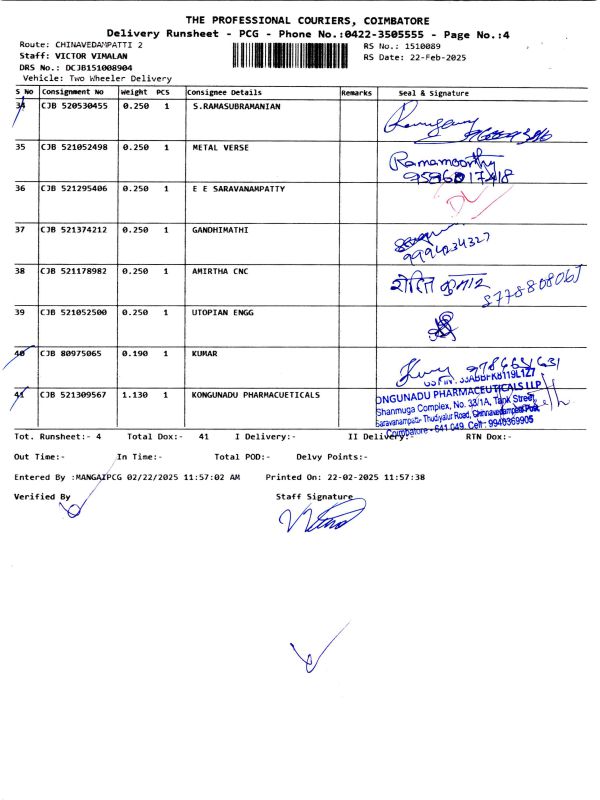 THE PROFESSIONAL COURIERS, COIMBATORE
Delivery Runsheet - PCG - Phone No.:0422-3505555 - Page No.:4
Route: CHINAVEDAMPATTI 2 RS No.: 1510089
Staff: VICTOR VIMALAN RS Date: 22-Feb-2025
DRS No.: DCJB151008904
Vehicle: Two Wheeler Delivery
S No Consignment No Weight PCS Consignee Details Remarks Seal & Signature
34 CJB 520530455 0.250 1 S.RAMASUBRAMANIAN
35 CJB 521052498 0.250 1 METAL VERSE Ramamoorthy
9586817418
36 CJB 521295406 0.250 1 E E SARAVANAMPATTY
37 CJB 521374212 0.250 1 GANDHIMATHI
9994234327
38 CJB 521178982 0.250 1 AMIRTHA CNC कुमार
39 CJB 521052500 0.250 1 UTOPIAN ENGG
40 CJB 80975065 0.190 1 KUMAR
41 CJB 521309567 1.130 1 KONGUNADU PHARMACUETICALS
GSTIN : 33ABBFK8119L1Z7
ONGUNADU PHARMACEUTICALS LLP
Shanmuga Complex, No. 33/1A, Tank Street,
Saravanampatti- Thudiyalur Road, Chinnavedampatti Post,
Coimbatore - 641 049. Cell : 9940369905
Tot. Runsheet:- 4 Total Dox:- 41 I Delivery:- II Delivery:- RTN Dox:-
Out Time:- In Time:- Total POD:- Delvy Points:-
Entered By :MANGAIPCG 02/22/2025 11:57:02 AM Printed On: 22-02-2025 11:57:38
Verified By Staff Signature